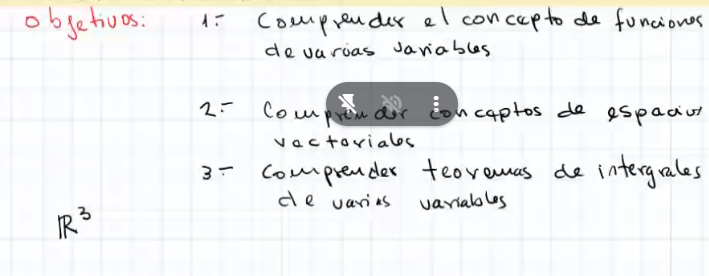 Objetivos: 1.- Comprender el concepto de funciones
de varias variables
2.- Comprender conceptos de espacios
vectoriales
3.- Comprender teoremas de intergrales
de varias variables
ℝ³